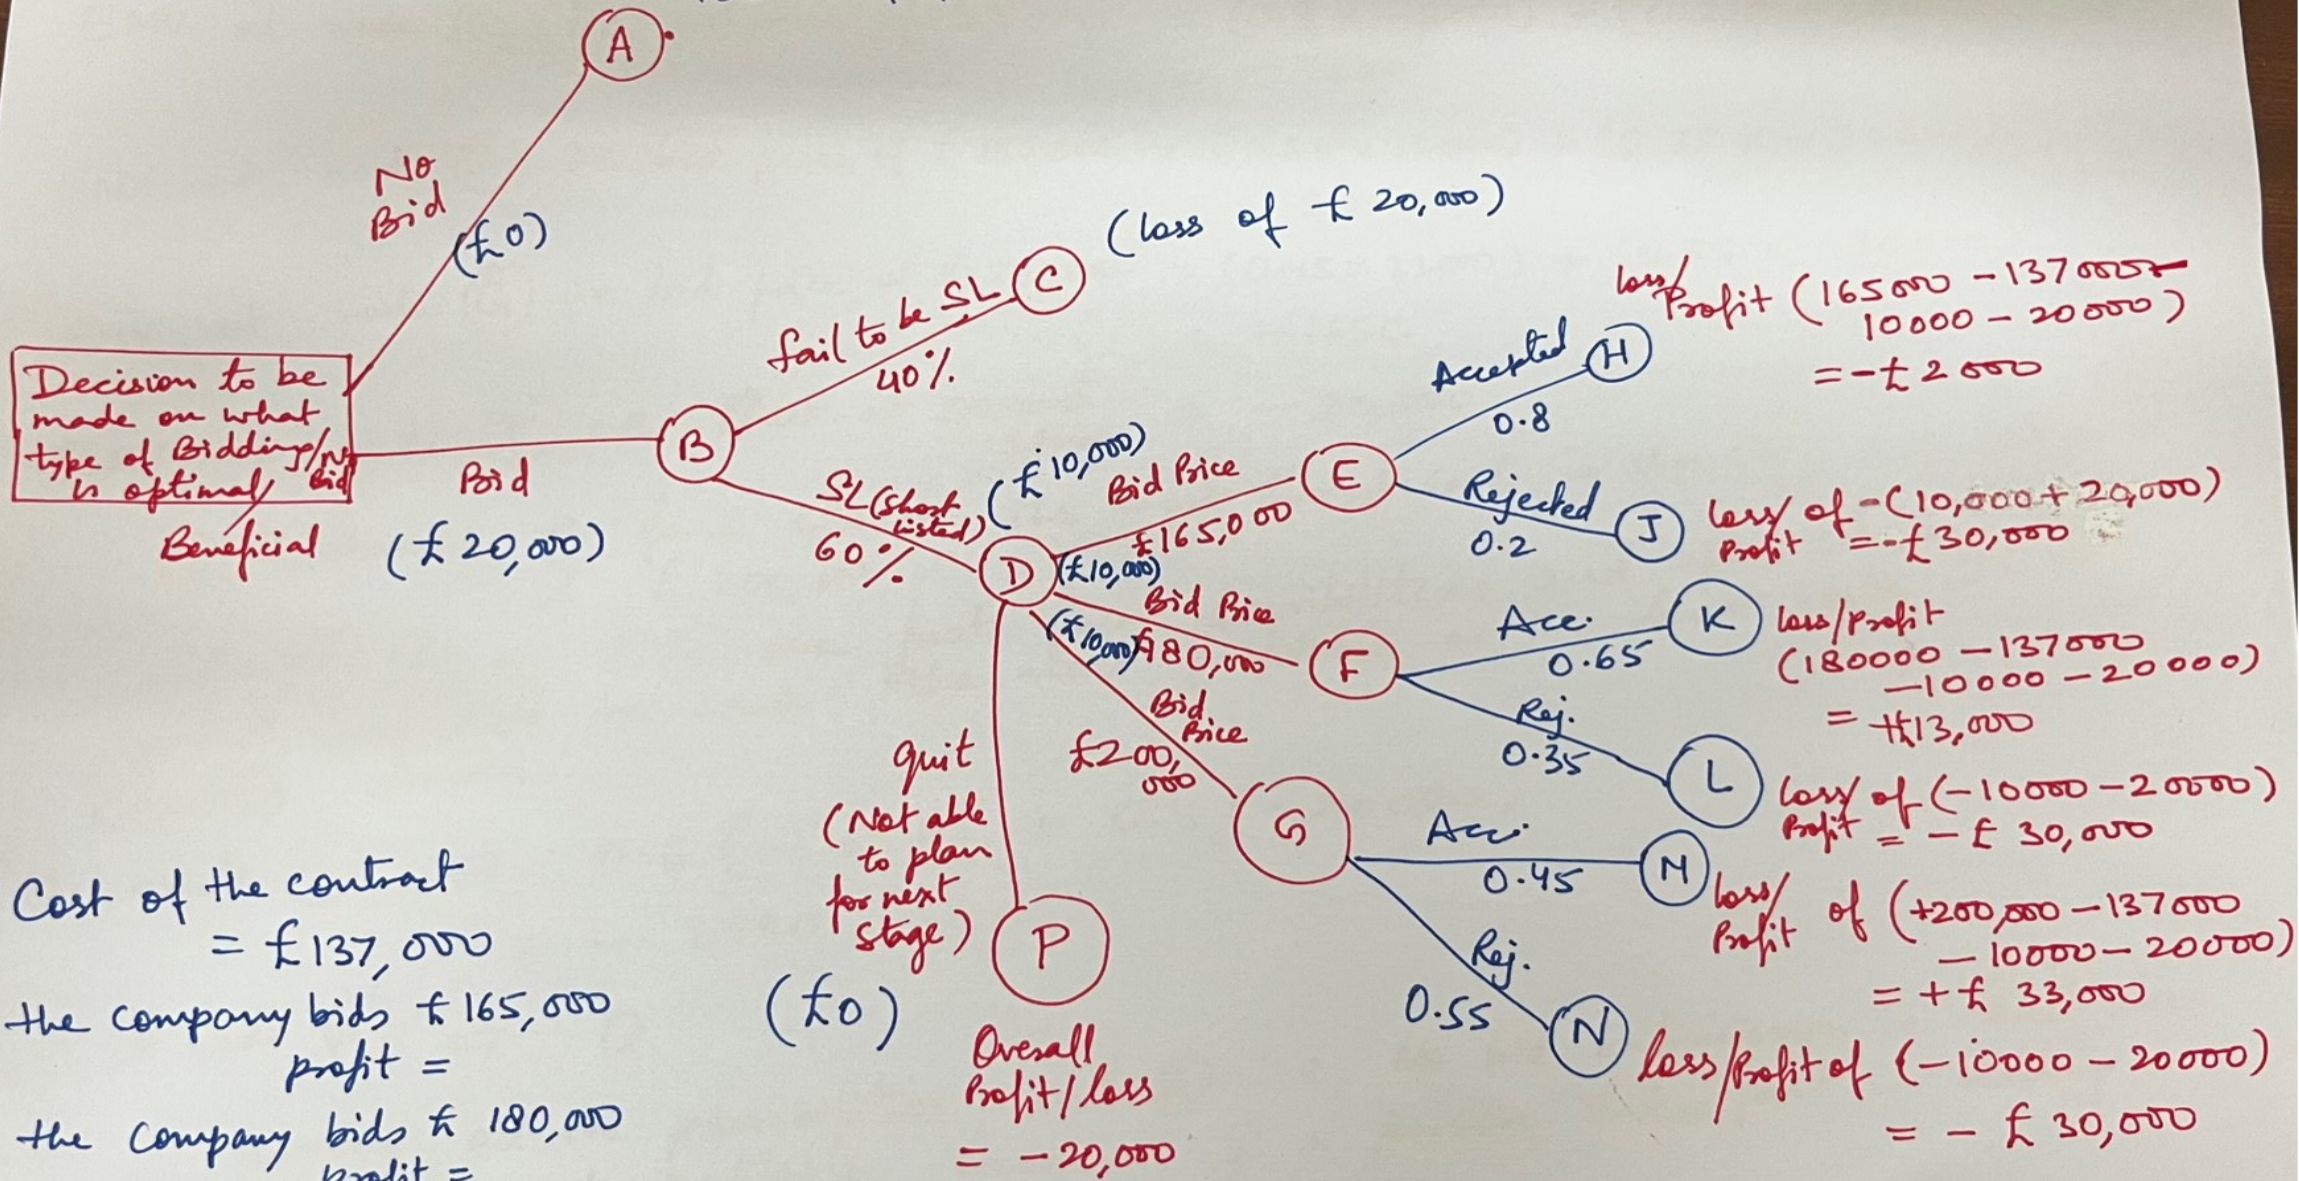 A
No
Bid
(£0)
Decision to be
made on what
type of Bidding/No
is optimal/ Bid
Beneficial
Bid
(£20,000)
B
fail to be SL
40%
C
(loss of £ 20,000)
SL (Short
listed)
60%
D
(£10,000)
Bid Price
£165,000
E
Accepted
0.8
H
loss/
Profit (165000 - 137000-
10000 - 20000)
= -£2000
Rejected
0.2
J
loss/ of -(10,000 + 20,000)
Profit = -£30,000
(£10,000)
Bid Price
£180,000
F
Acc.
0.65
K
loss/Profit
(180000 - 137000
- 10000 - 20000)
= +£13,000
Rej.
0.35
L
loss/ of (-10000 - 20000)
Profit = - £ 30,000
(£10,000)
Bid
Price
£200,
000
G
Acc.
0.45
M
loss/
Profit of (+200,000 - 137000
- 10000 - 20000)
= + £ 33,000
Rej.
0.55
N
loss/Profit of (-10000 - 20000)
= - £ 30,000
quit
(Not able
to plan
for next
stage)
(£0)
P
Overall
Profit/loss
= - 20,000
Cost of the contract
= £137,000
the company bids £165,000
profit =
the company bids £ 180,000
profit =